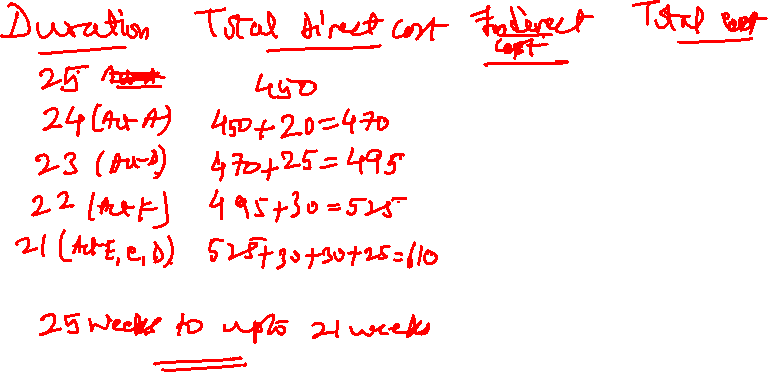 Duration Total direct cost Indirect cost Total cost
25 450
24 (Act A) 450+20=470
23 (Act D) 470+25=495
22 (Act F) 495+30=525
21 (Act E, C, D) 525+30+30+25=610
25 weeks to upto 21 weeks